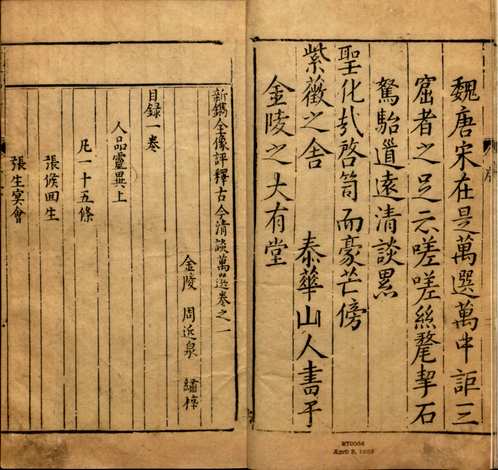 魏唐宋在是萬選萬中詎三
窟者之足云嗟嗟絲鶩挈石
駑駘道遠清談累
聖化弐啓笥而豪芒傍
紫薇之舍 泰華山人書于
金陵之大有堂
序
新鐫全像評釋古今清談萬選卷之一
金陵 周近泉 繡梓
目錄一卷
人品靈異上
凢一十五條
張侯回生
張生冥會
April 9, 1938